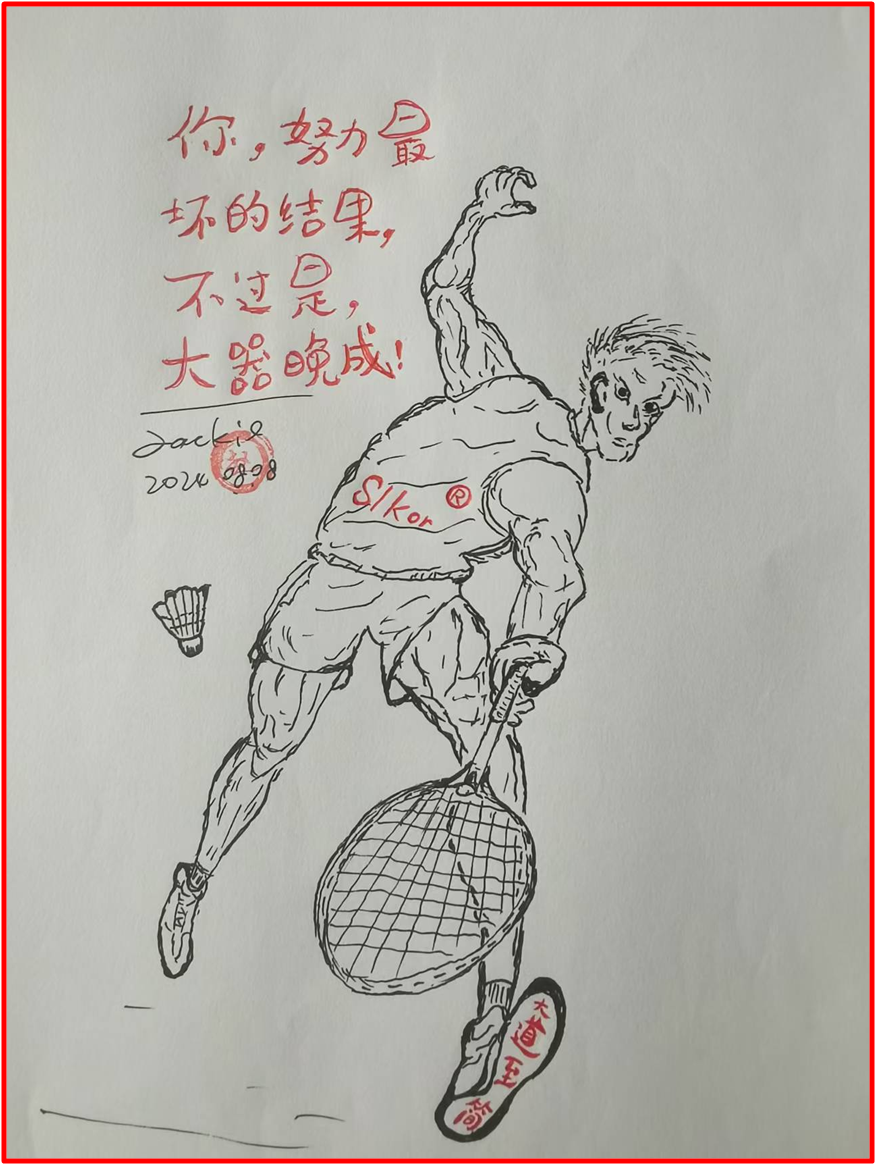 你，努力最
坏的结果，
不过是，
大器晚成！
Jackie
2024.08.08
Slkor®
大
道
至
简